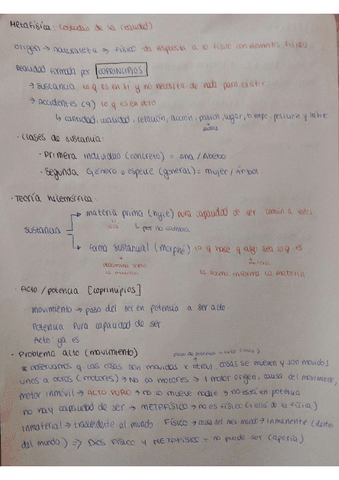 Metafísica (estudio de la realidad)
origen → naturaleza → físico da respuesta a lo físico con elementos físicos
Realidad formada por COPRINCIPIOS
→ sustancia lo q es en sí y no necesita de nada para existir
→ accidentes (9) lo q es en otro
↳ cantidad, cualidad, relación, acción, pasión, lugar, tiempo, posición y hábito
· Clases de sustancia:
· Primera individuo (concreto) = Ana / Árbol
· Segunda género o especie (general) = mujer / árbol
· Teoría hilemórfica:
materia prima (hyle) pura capacidad de ser común a todos
sustancia ↳ por no cambia
forma sustancial (morphé) lo q hace q algo sea lo q es
la forma informa la materia
· Acto / potencia [coprincipios]
movimiento → paso del ser en potencia a ser acto
Potencia pura capacidad de ser
Acto ya es
· Problema acto (movimiento)
* observamos q las cosas son movidas x otras, cosas se mueven y son movidas
unos a otros (motores) → no ∞ motores → 1 motor origen, causa del movimiento,
motor inmóvil → ACTO PURO → no lo mueve nadie → no está en potencia
no hay capacidad de ser → METAFÍSICO → no es físico (+ allá de la física)
inmaterial → trascendente al mundo FÍSICO → causa del mov mundo → inmanente (dentro
del mundo) => DIOS FÍSICO Y METAFÍSICO → no puede ser (aporía)